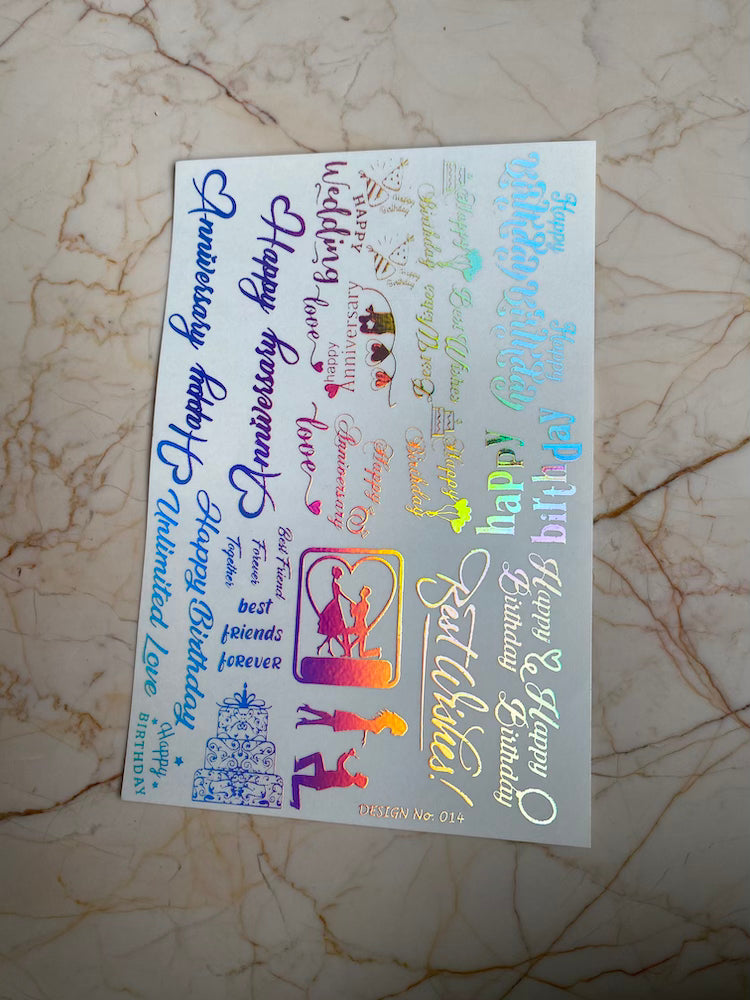 Happy
Birthday
Happy
Birthday
happy
birthday
Happy
Birthday
Happy
Birthday
Happy
Birthday
Best Wishes
Best Wishes
Happy
Birthday
Best Wishes!
Happy
Birthday
Happy
Birthday
HAPPY
Wedding
love
happy
Anniversary
love
Happy
Anniversary
Happy Anniversary
Anniversary Happy
Best Friend
Forever
Together
best
friends
forever
Happy Birthday
Unlimited Love
Happy
BIRTHDAY
DESIGN No. 014